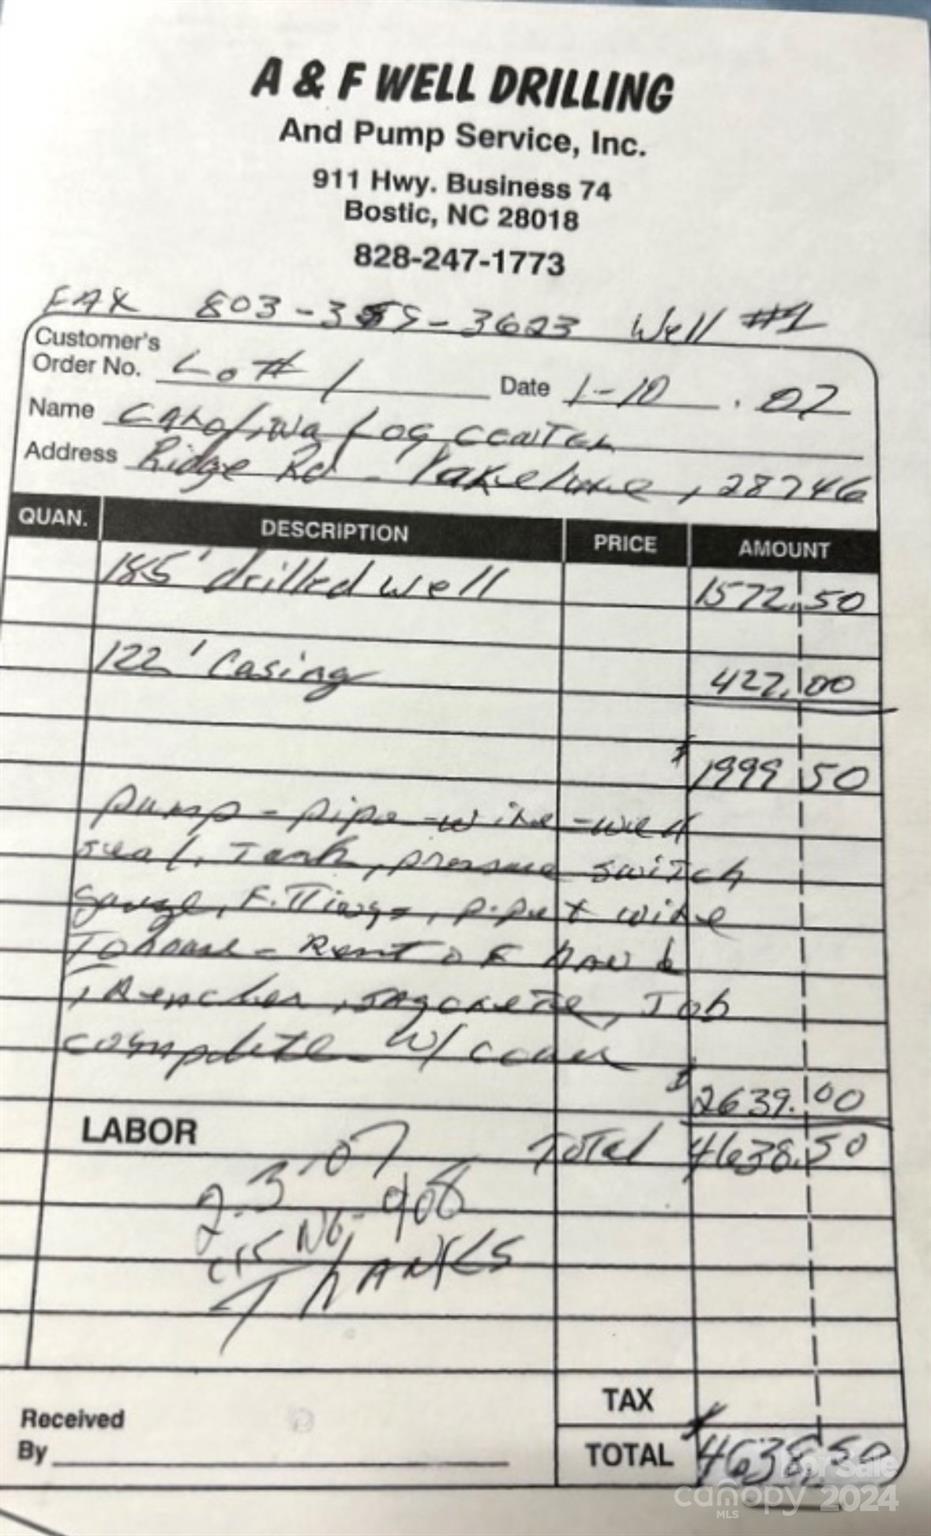 A & F WELL DRILLING
And Pump Service, Inc.
911 Hwy. Business 74
Bostic, NC 28018
828-247-1773
FAX 803-359-3623 Well #1
Customer's
Order No. Lot # 1 Date 1-10 . 07
Name Carolina Log Center
Address Ridge Rd - Lakelure, 28746
QUAN. DESCRIPTION PRICE AMOUNT
185' drilled well 1572.50
122' Casing 427.00
$ 1999 50
pump - pipe - wire - well
seal, Tank, pressure switch
gauge, Fittings, pipe + wire
To house - Rent of
Trencher, Job
complete w/ cover
$ 2639.00
LABOR Total 4638.50
2-3-07
No. 908
Thanks
TAX
Received
By TOTAL $4638.50
For Sale
canopy 2024
MLS